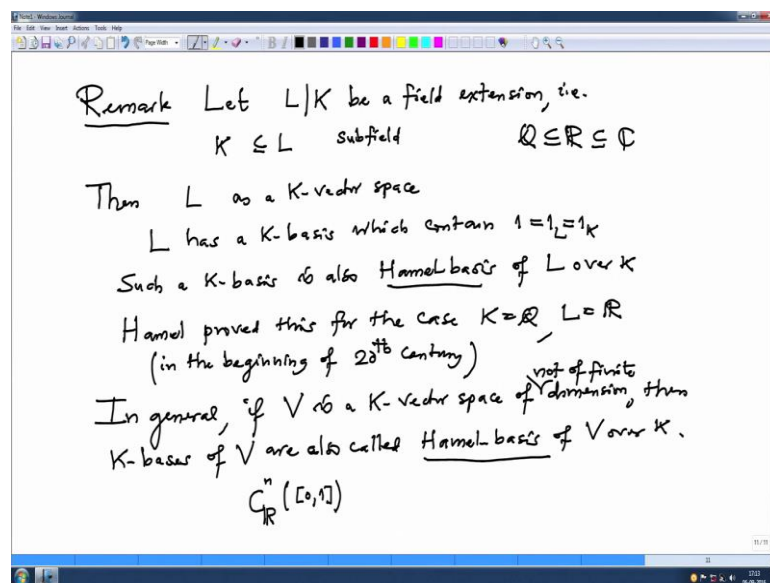 Note1 - Windows Journal
File Edit View Insert Actions Tools Help
Page Width
Remark Let L|K be a field extension, i.e.
K ⊆ L subfield ℚ ⊆ ℝ ⊆ ℂ
Then L as a K-vector space
L has a K-basis which contain 1 = 1_L = 1_K
Such a K-basis is also Hamel basis of L over K
Hamel proved this for the case K = ℚ, L = ℝ
(in the beginning of 20th century)
In general, if V is a K-vector space of not of finite dimension, then
K-bases of V are also called Hamel-basis of V over K.
C^n_ℝ ([0,1])
11/11
11
17:13